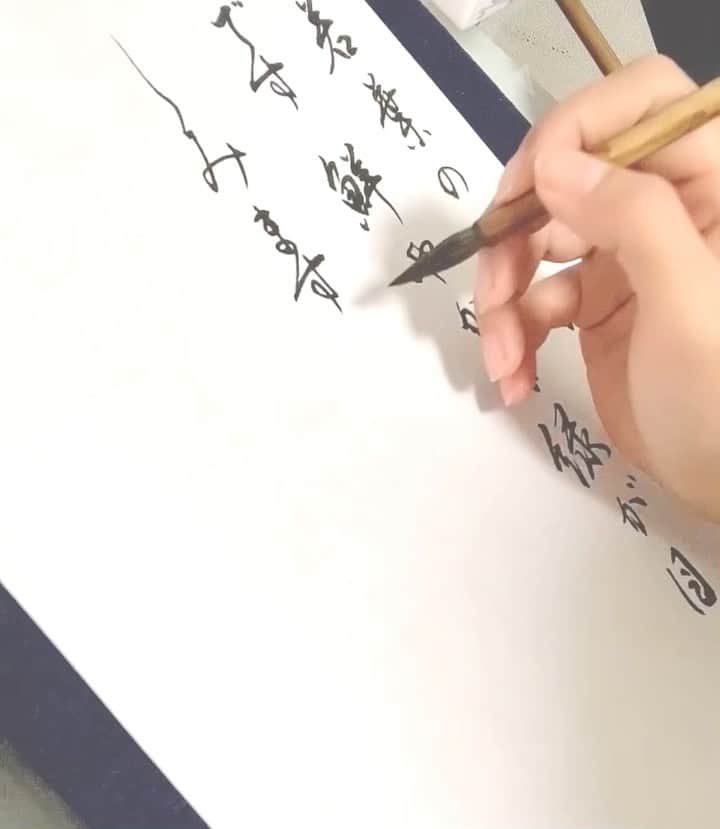 若葉の
です鮮やか 緑が目
しみます